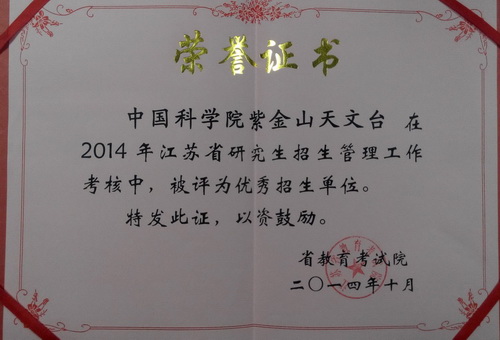 荣誉证书
中国科学院紫金山天文台 在
2014年江苏省研究生招生管理工作
考核中，被评为优秀招生单位。
特发此证，以资鼓励。
省教育考试院
二〇一四年十月